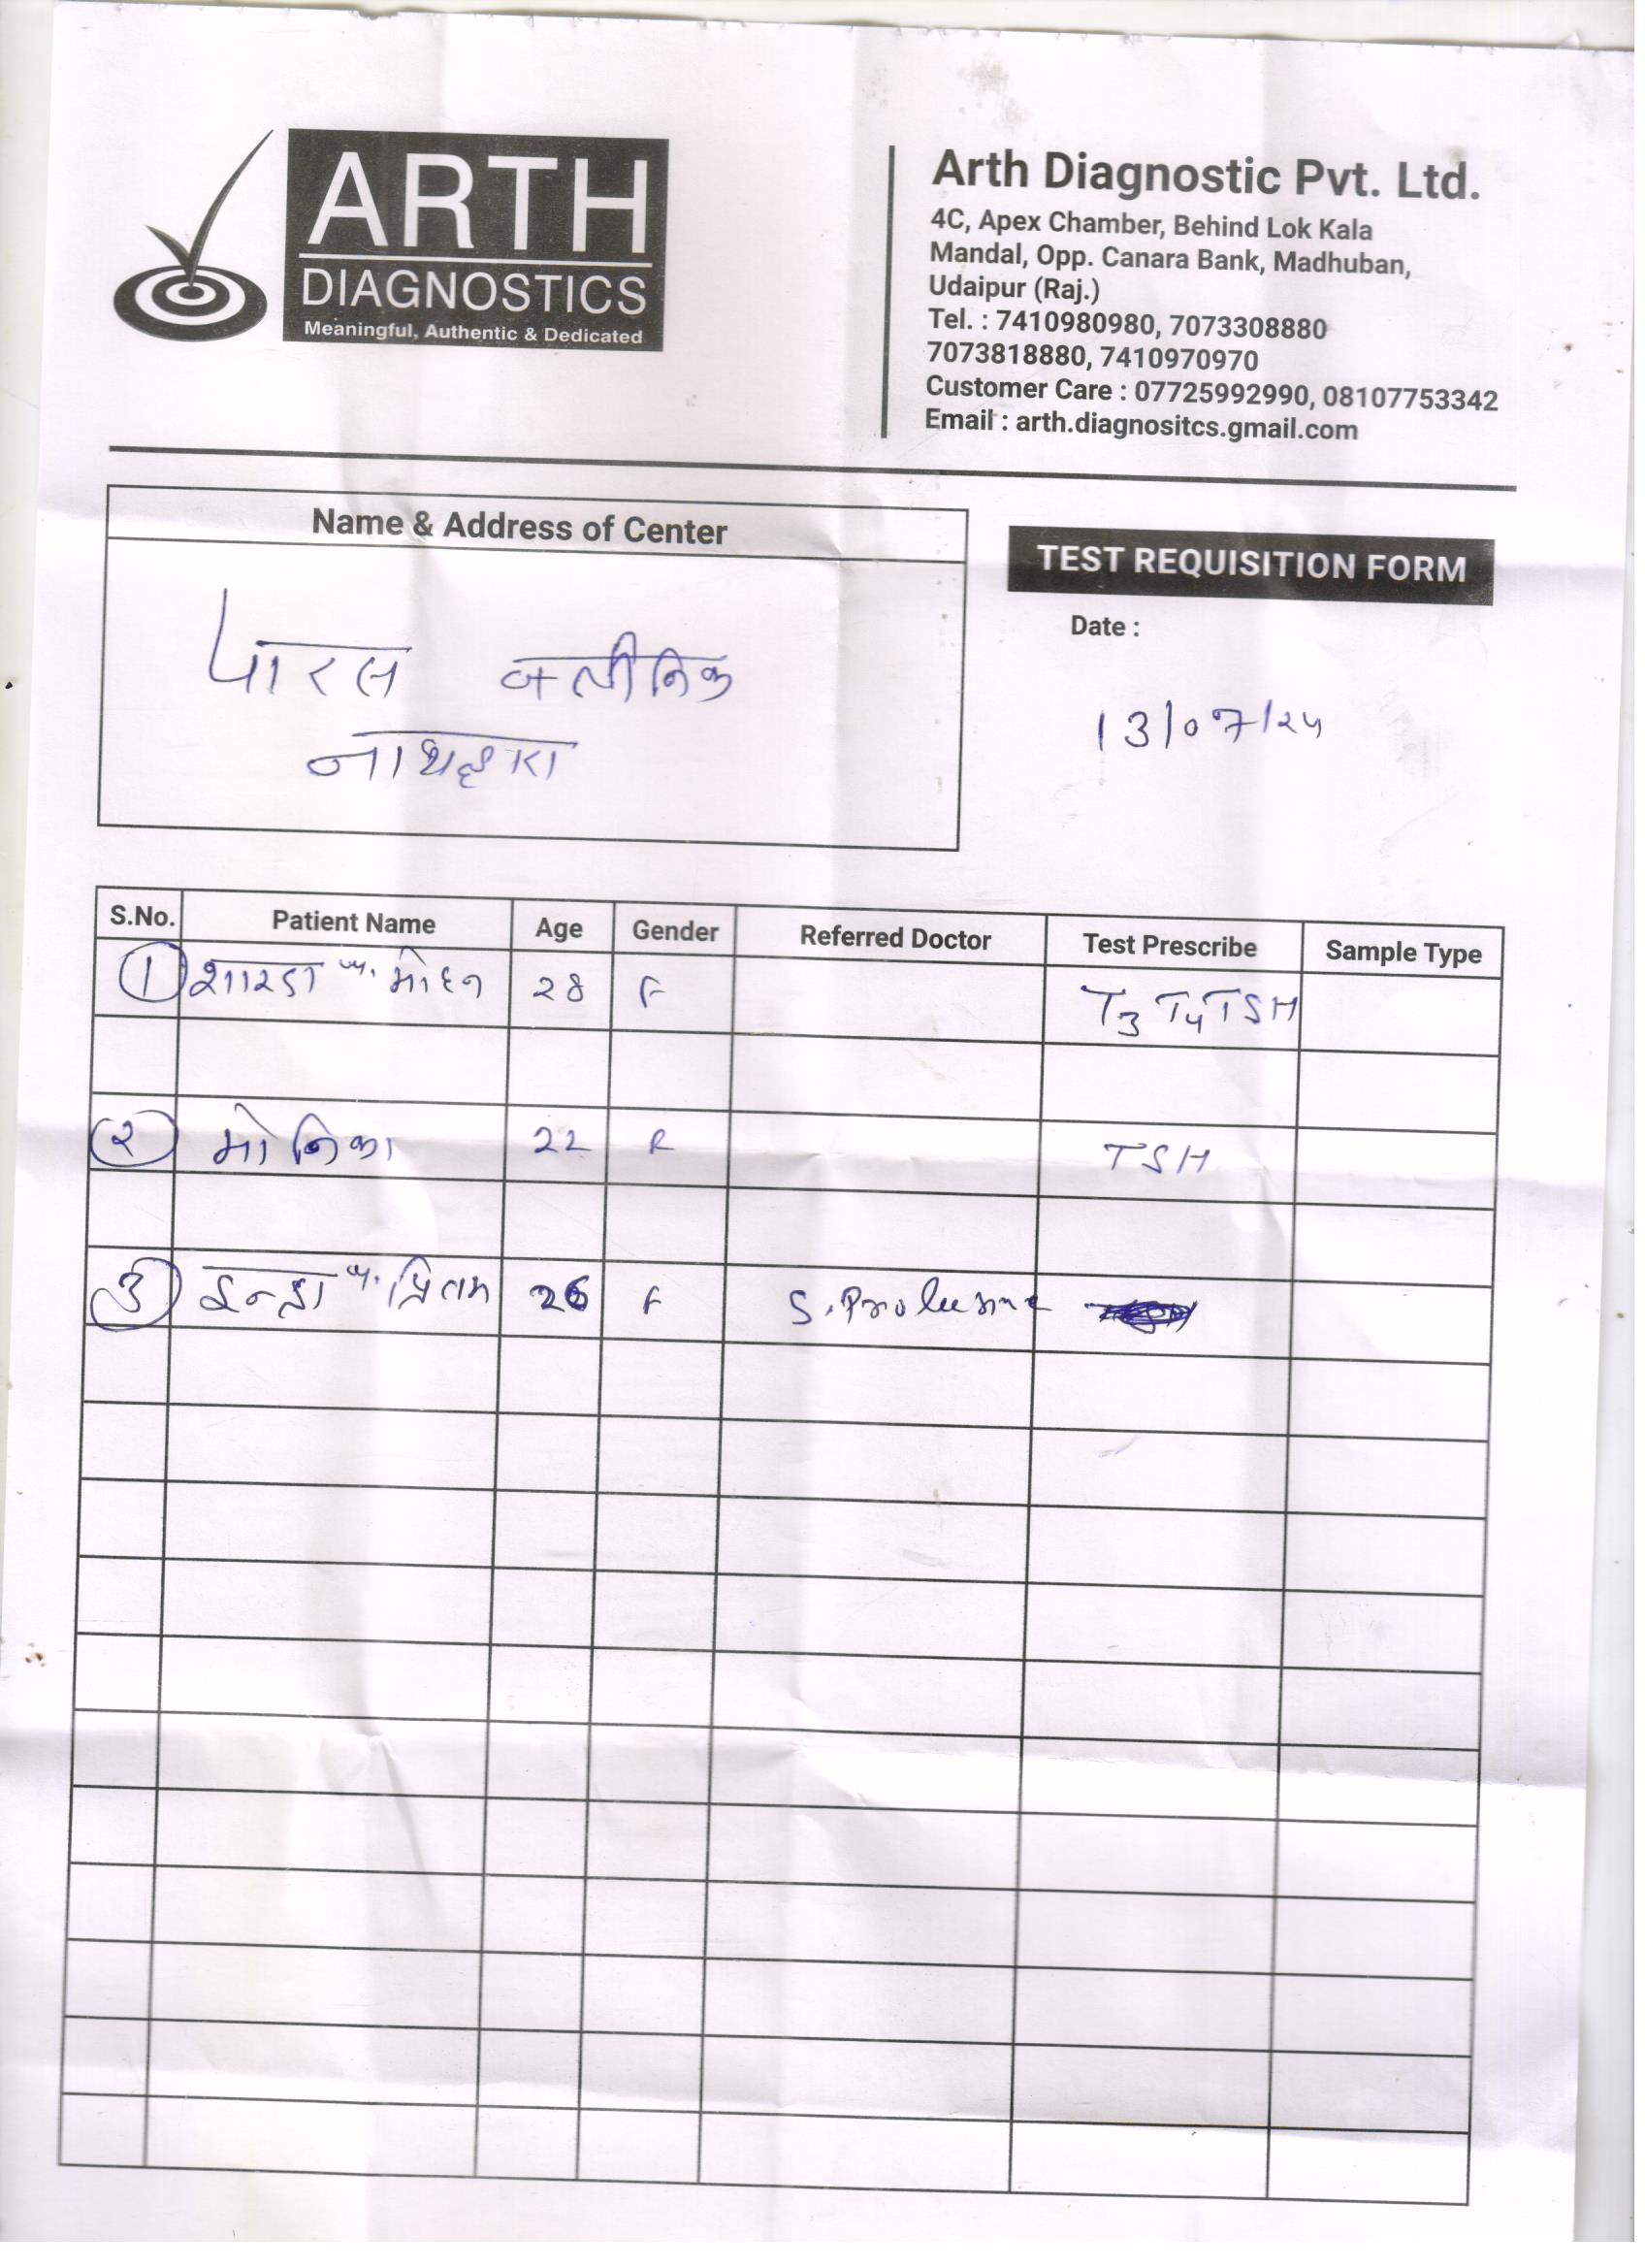 ARTH
DIAGNOSTICS
Meaningful, Authentic & Dedicated
Arth Diagnostic Pvt. Ltd.
4C, Apex Chamber, Behind Lok Kala
Mandal, Opp. Canara Bank, Madhuban,
Udaipur (Raj.)
Tel. : 7410980980, 7073308880
7073818880, 7410970970
Customer Care : 07725992990, 08107753342
Email : arth.diagnositcs.gmail.com
Name & Address of Center
पारस क्लीनिक
TEST REQUISITION FORM
Date :
13/07/24
S.No. Patient Name Age Gender Referred Doctor Test Prescribe Sample Type
1 शारडा w. मोहन 28 F T3 T4 TSH
२ मोनिका 22 F TSH
3 इन्द्रा w. प्रितम 26 F